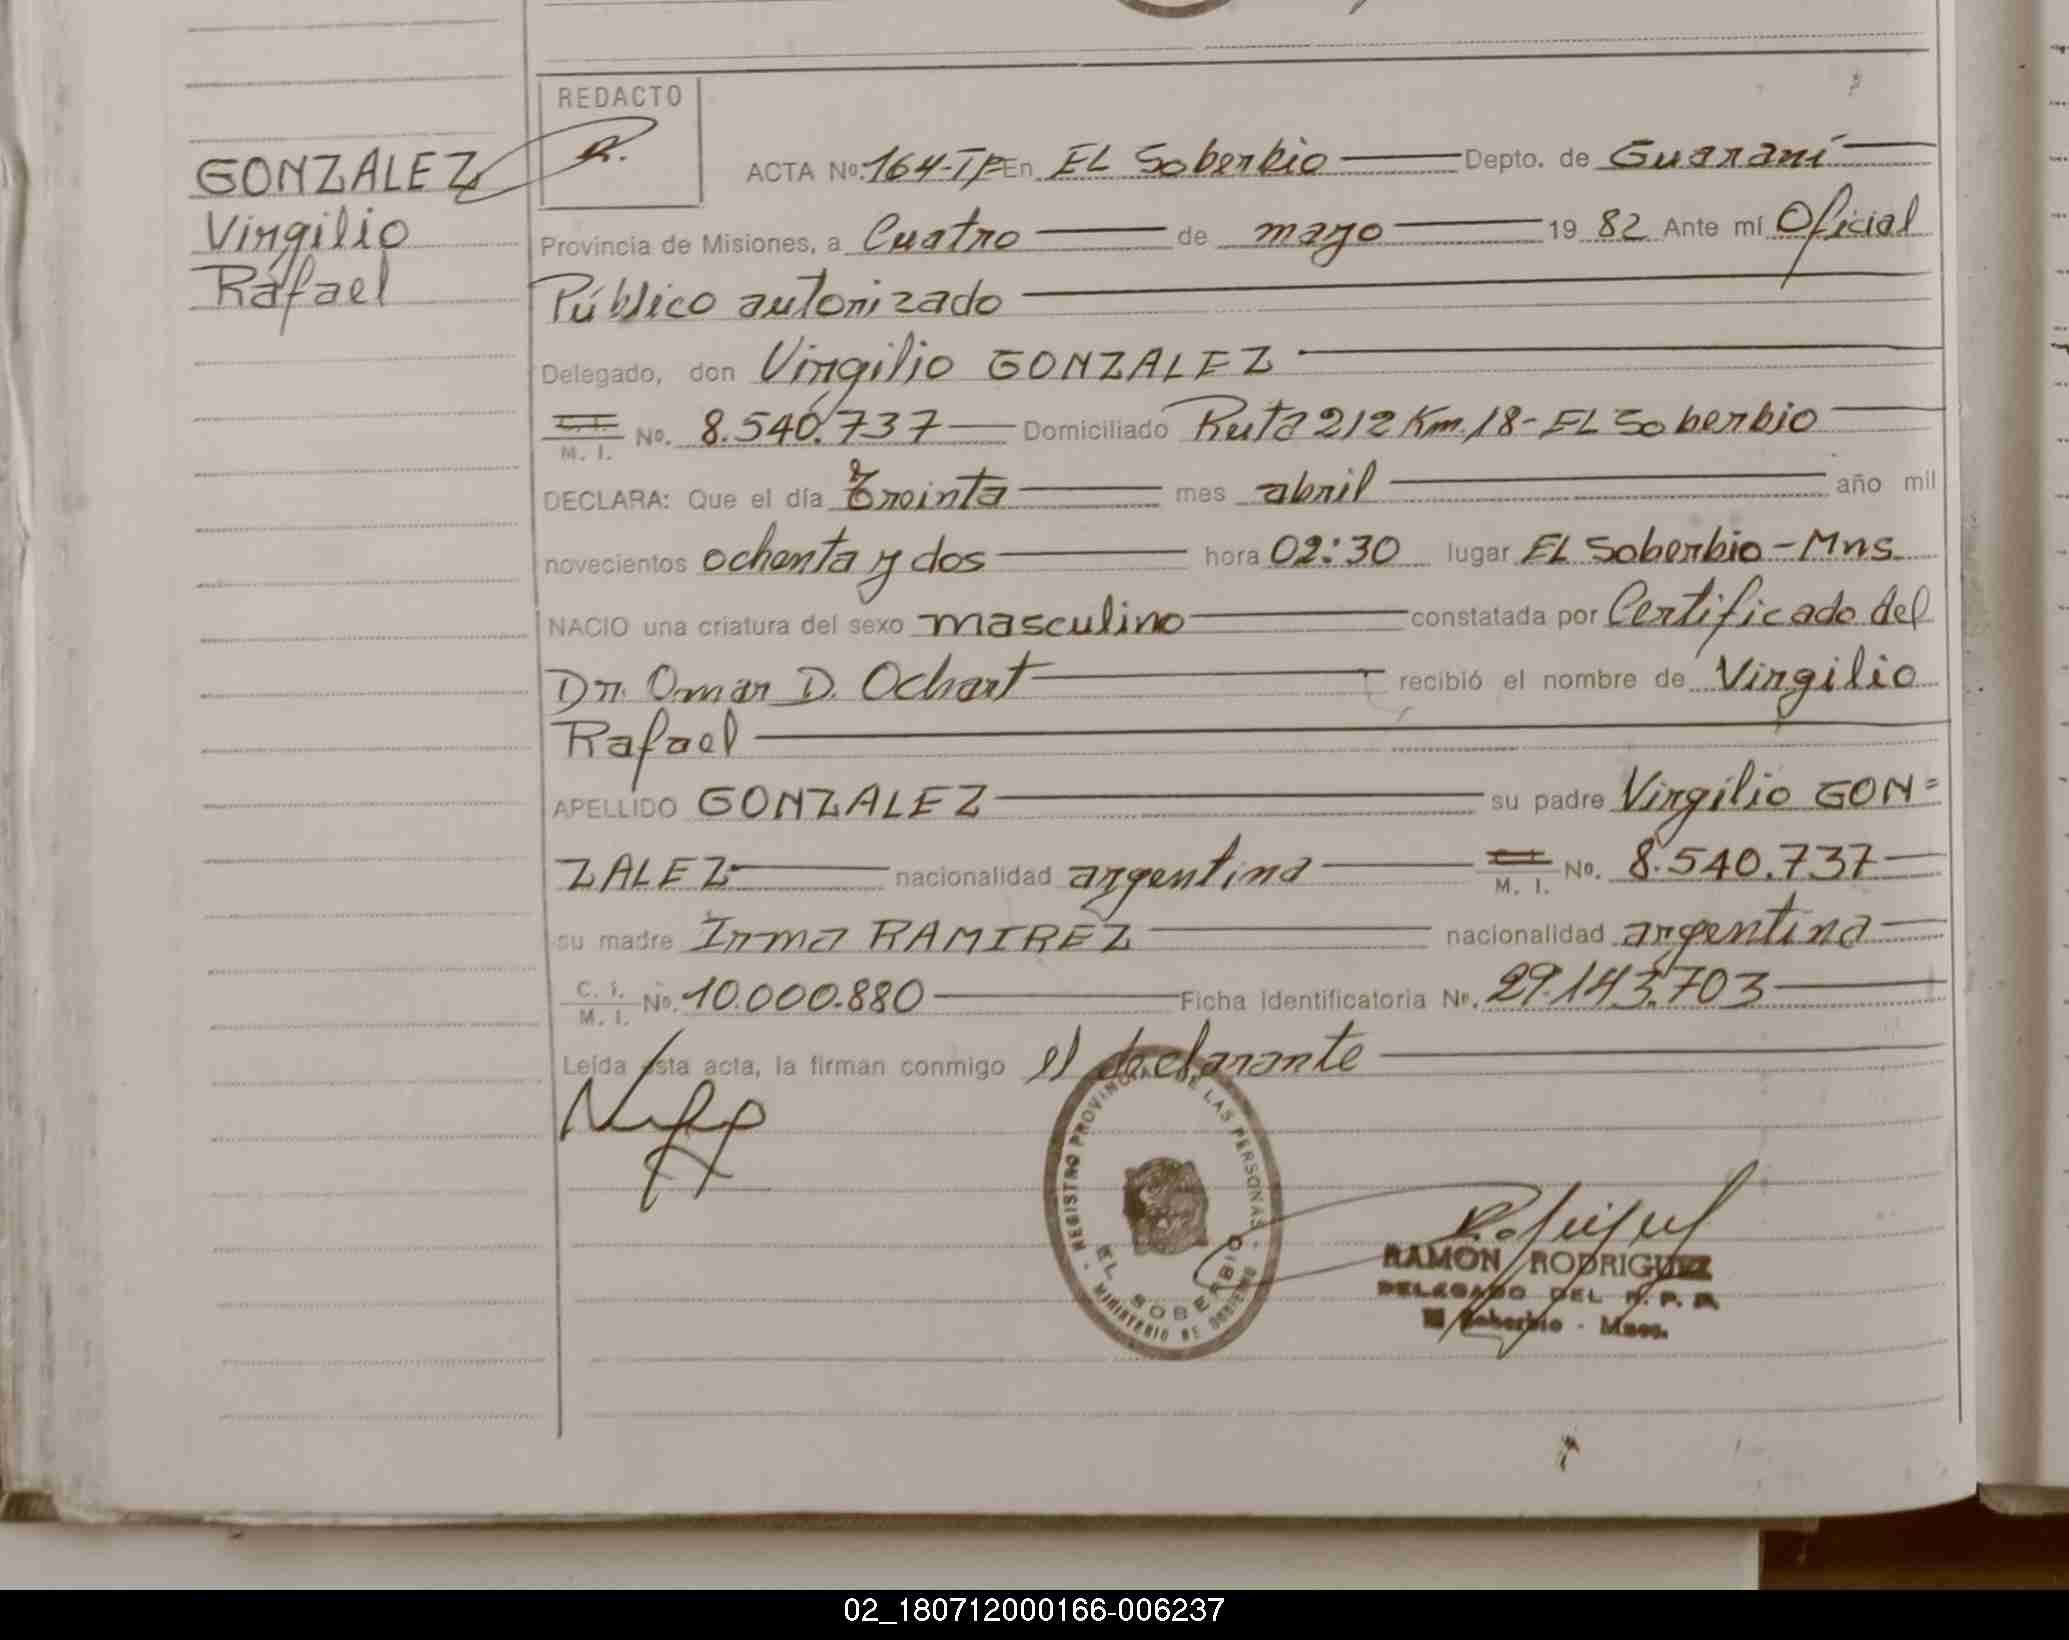 GONZALEZ
Virgilio
Rafael
REDACTO
R.
ACTA No. 164-TP En EL Soberbio Depto. de Guaraní
Provincia de Misiones, a Cuatro de mayo 19 82 Ante mí Oficial
Público autorizado
Delegado, don Virgilio GONZALEZ
C. I.
M. I. No. 8.540.737 Domiciliado Ruta 212 Km. 18 - EL Soberbio
DECLARA: Que el día Treinta mes abril año mil
novecientos ochenta y dos hora 02:30 lugar EL Soberbio - Mns.
NACIO una criatura del sexo masculino constatada por Certificado del
Dr. Omar D. Ochart recibió el nombre de Virgilio
Rafael
APELLIDO GONZALEZ su padre Virgilio GON=
ZALEZ nacionalidad argentina M. I. No. 8.540.737
su madre Irma RAMIREZ nacionalidad argentina
C. I.
M. I. No. 10.000.880 Ficha identificatoria No. 29.143.703
Leída esta acta, la firman conmigo el declarante
REGISTRO PROVINCIAL DE LAS PERSONAS
EL SOBERBIO
MINISTERIO DE GOBIERNO
RAMON RODRIGUEZ
DELEGADO DEL R. P. P.
El Soberbio - Mnes.
02_180712000166-006237